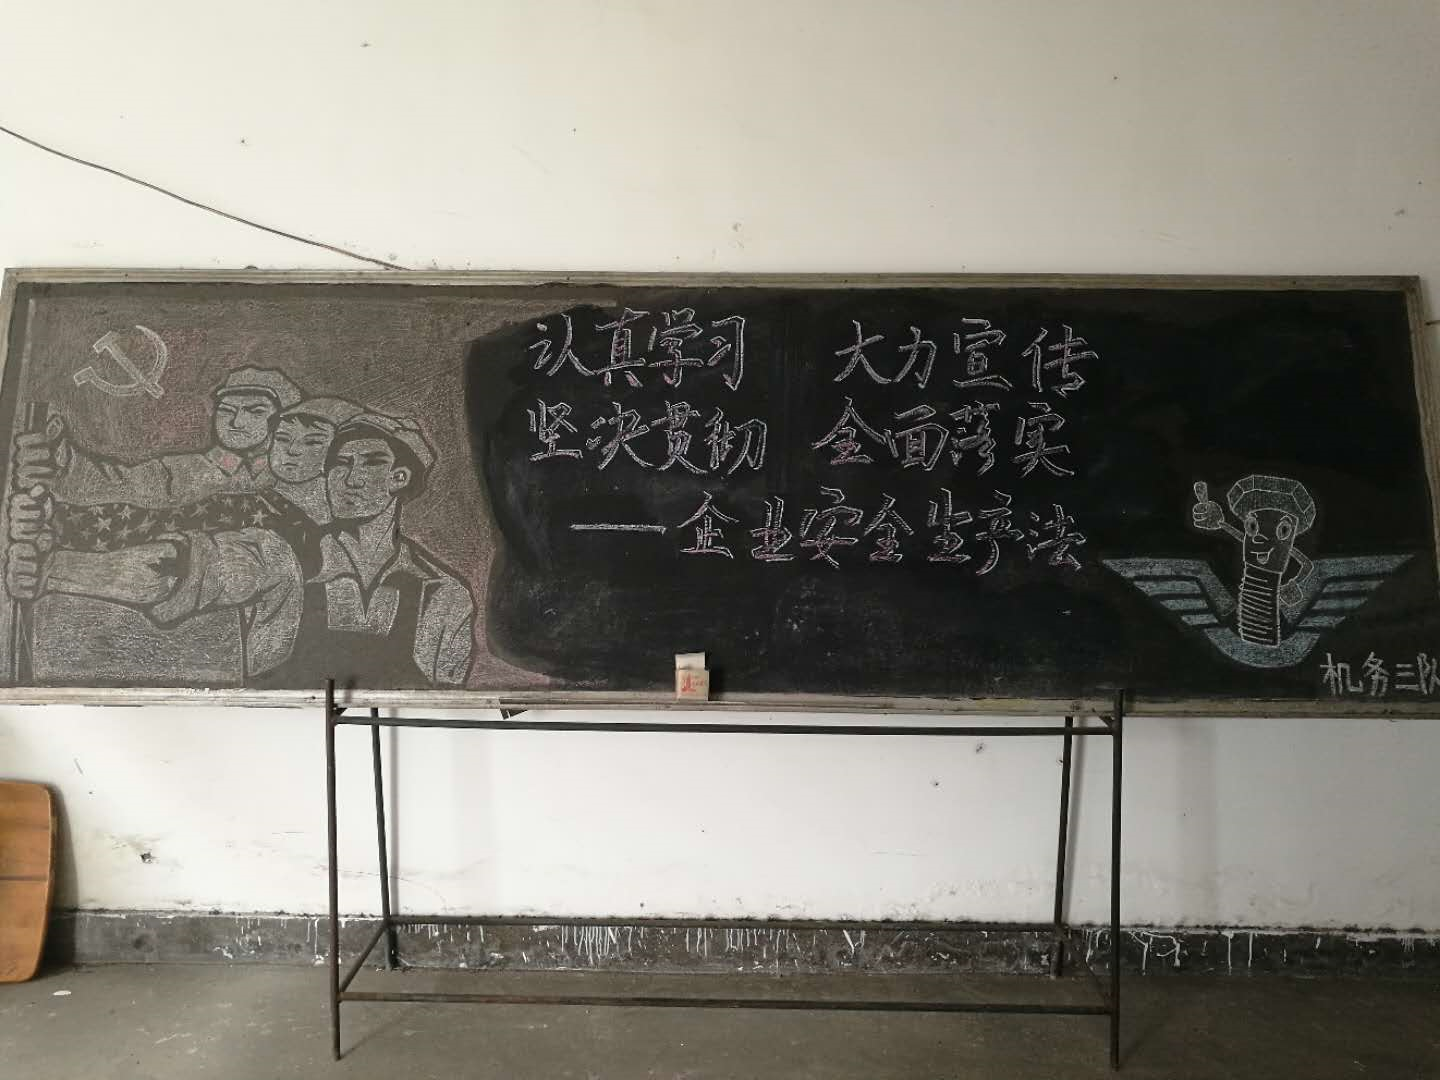 认真学习 大力宣传
坚决贯彻 全面落实
——企业安全生产法
机务三队